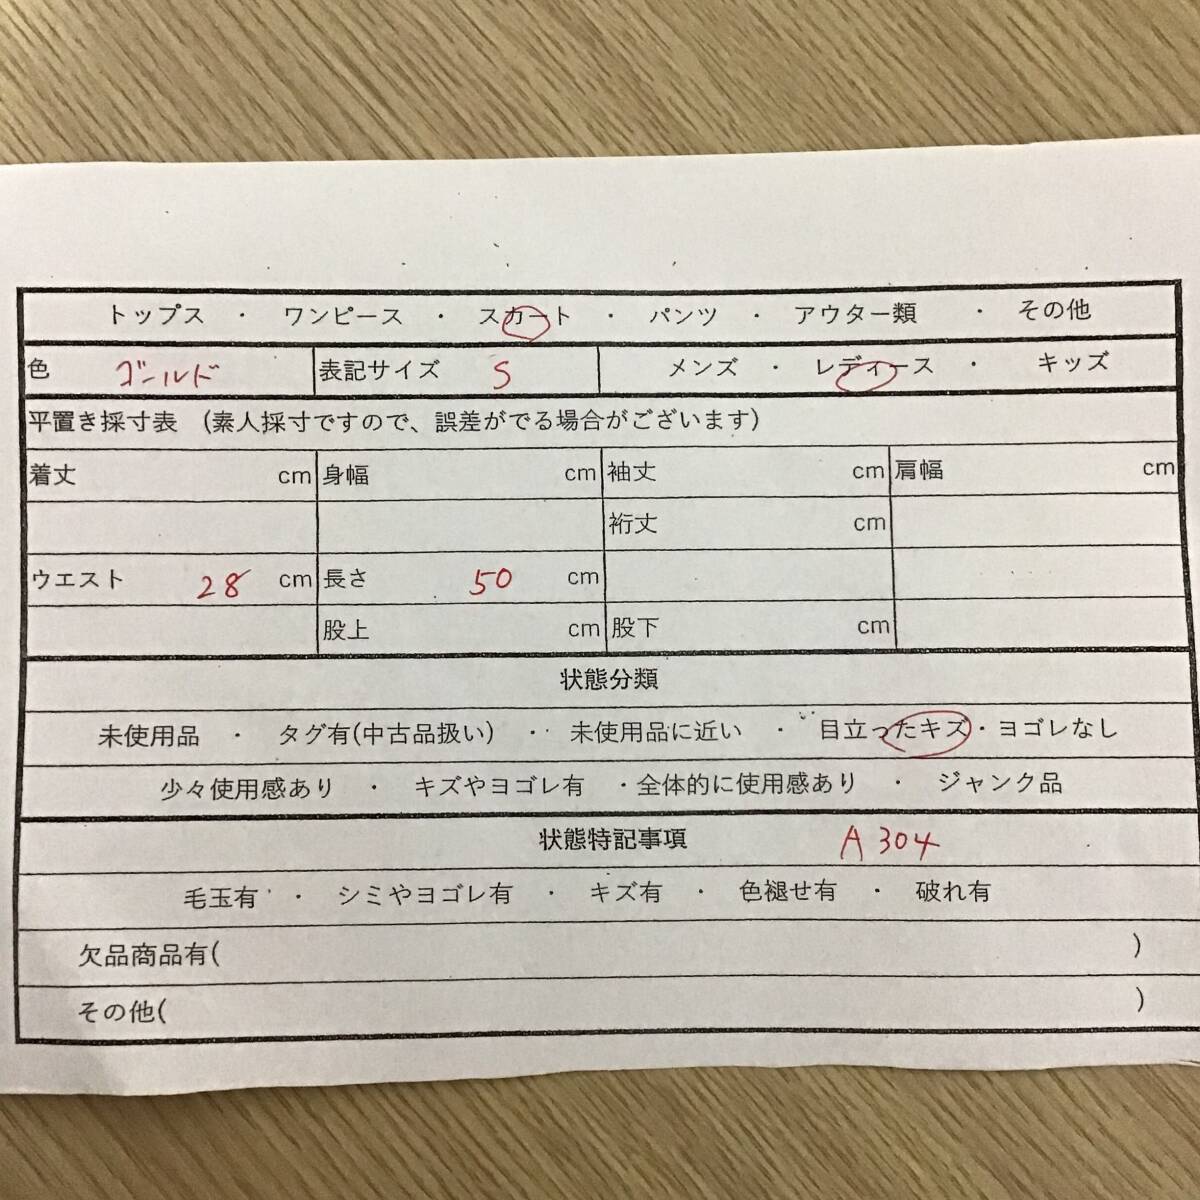 トップス ・ ワンピース ・ スカート ・ パンツ ・ アウター類 ・ その他
色 ゴールド 表記サイズ S メンズ ・ レディース ・ キッズ
平置き採寸表 (素人採寸ですので、誤差がでる場合がございます)
着丈 cm 身幅 cm 袖丈 cm 肩幅 cm
裄丈 cm
ウエスト 28 cm 長さ 50 cm
股上 cm 股下 cm
状態分類
未使用品 ・ タグ有(中古品扱い) ・・ 未使用品に近い ・ 目立ったキズ・ヨゴレなし
少々使用感あり ・ キズやヨゴレ有 ・全体的に使用感あり ・ ジャンク品
状態特記事項 A 304
毛玉有 ・ シミやヨゴレ有 ・ キズ有 ・ 色褪せ有 ・ 破れ有
欠品商品有( )
その他( )